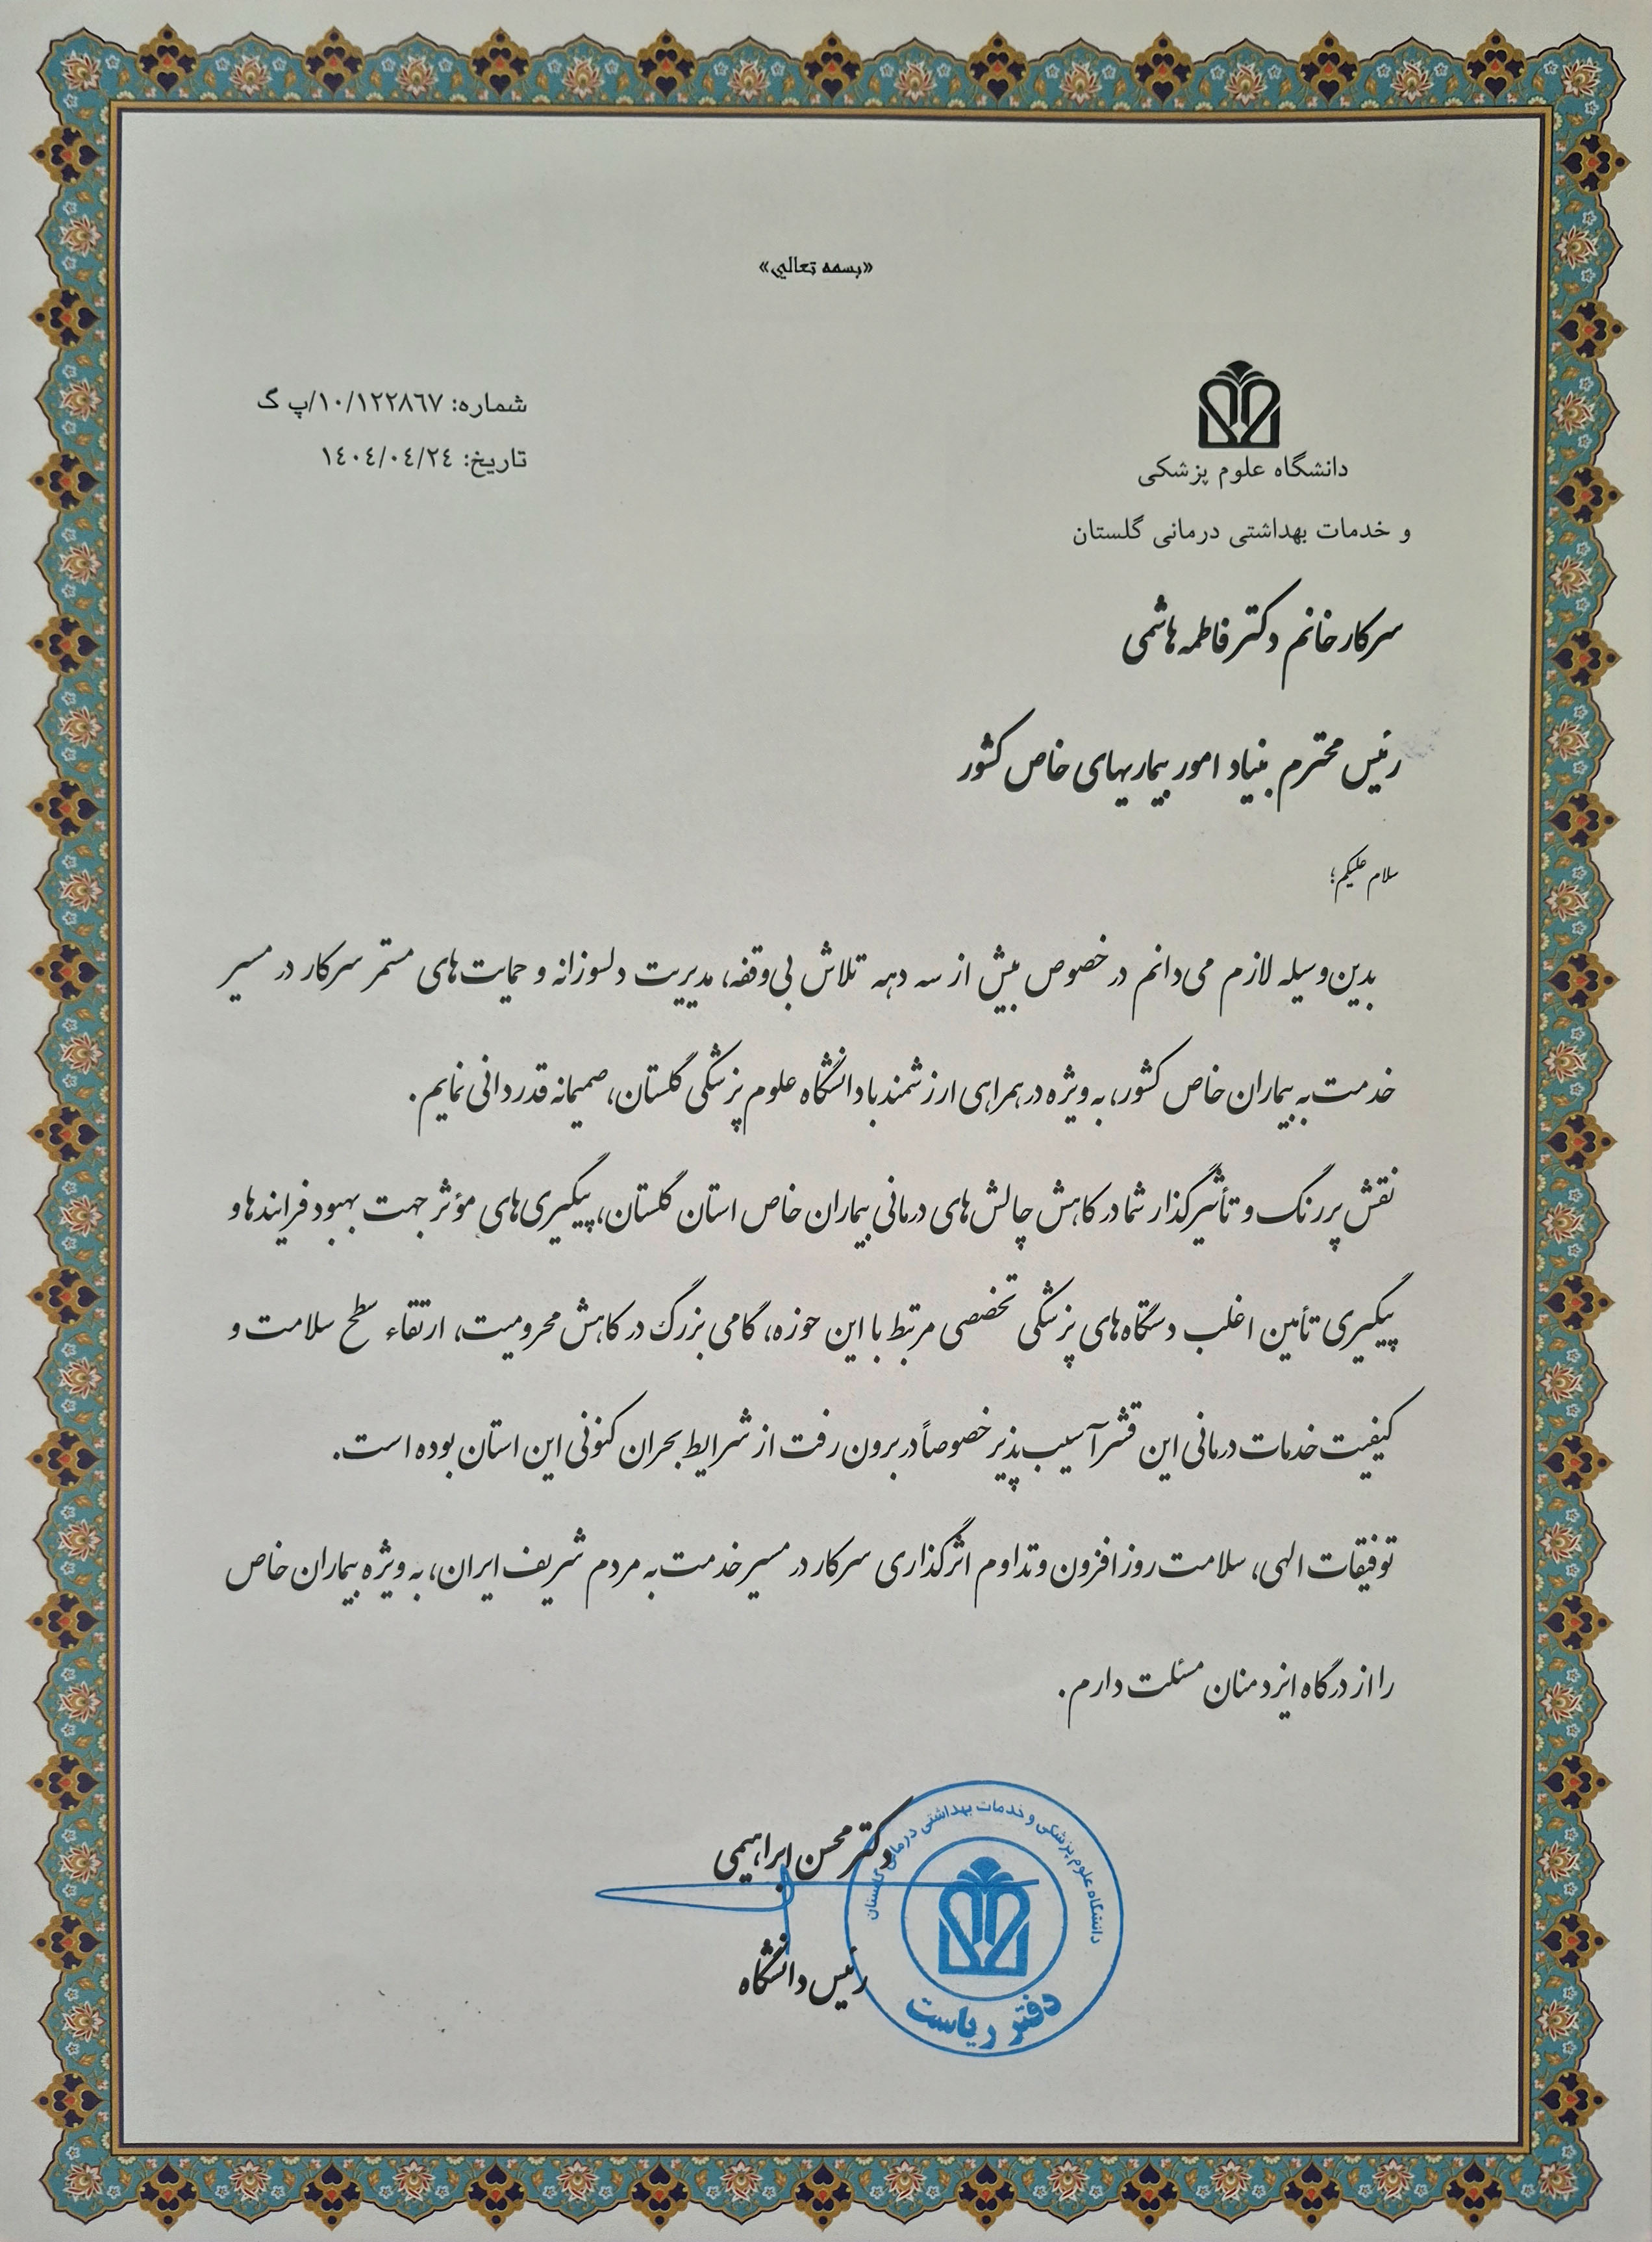 «بسمه تعالی»
شماره: ۱۰/۱۲۲۸٦۷/پ گ
تاریخ: ۱٤۰٤/۰٤/۲٤
دانشگاه علوم پزشکی
و خدمات بهداشتی درمانی گلستان
سرکار خانم دکتر فاطمه هاشمی
رئیس محترم بنیاد امور بیماریهای خاص کشور
سلام علیکم؛
بدین‌وسیله لازم می‌دانم در خصوص بیش از سه دهه تلاش بی‌وقفه، مدیریت دلسوزانه و حمایت‌های مستمر سرکار در مسیر
خدمت به بیماران خاص کشور، به ویژه در همراهی ارزشمند با دانشگاه علوم پزشکی گلستان، صمیمانه قدردانی نمایم.
نقش پررنگ و تأثیرگذار شما در کاهش چالش‌های درمانی بیماران خاص استان گلستان، پیگیری‌های مؤثر جهت بهبود فرایندها و
پیگیری تأمین اغلب دستگاه‌های پزشکی تخصصی مرتبط با این حوزه، گامی بزرگ در کاهش محرومیت، ارتقاء سطح سلامت و
کیفیت خدمات درمانی این قشر آسیب پذیر خصوصاً در برون رفت از شرایط بحران کنونی این استان بوده است.
توفیقات الهی، سلامت روزافزون و تداوم اثرگذاری سرکار در مسیر خدمت به مردم شریف ایران، به ویژه بیماران خاص
را از درگاه ایزد منان مسئلت دارم.
دکتر محسن ابراهیمی
رئیس دانشگاه
دانشگاه علوم پزشکی و خدمات بهداشتی درمانی گلستان
دفتر ریاست